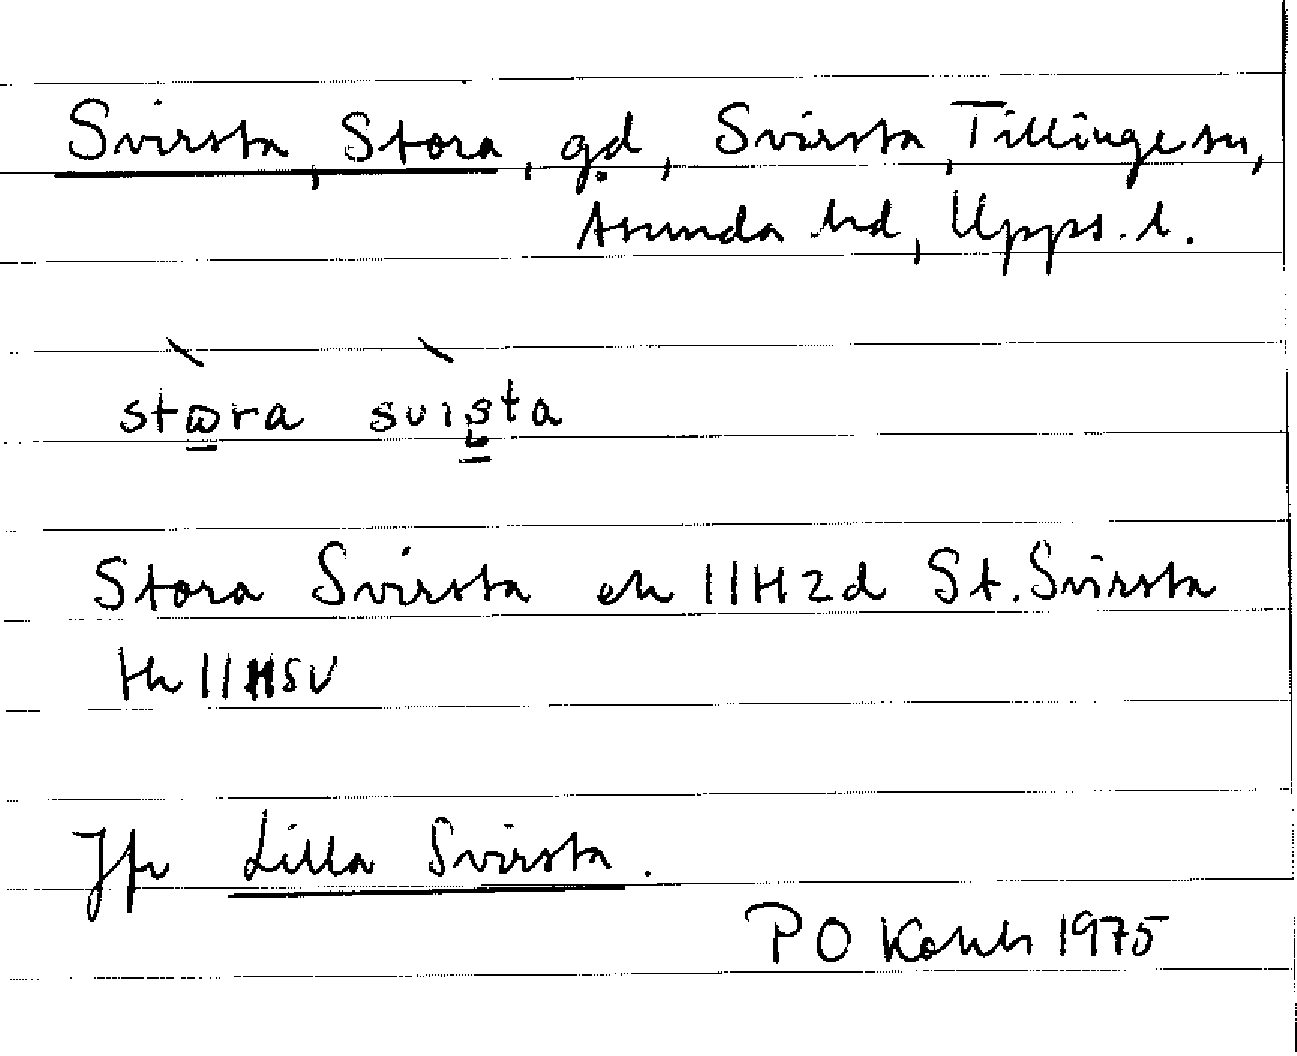 Svirsta, Stora, gd, Svirsta, Tillinge sn,
Asunda hd, Upps. l.
stɷra svısta
Stora Svirsta ek 11H2d St. Svirsta
tk 11HSV
Jfr Lilla Svirsta.
PO 1975